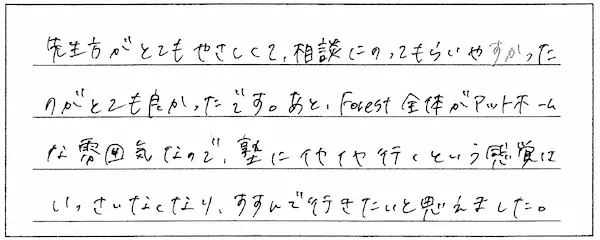 先生方がとてもやさしくて、相談にのってもらいやすかった
のがとても良かったです。あと、Forest全体がアットホーム
な雰囲気なので、塾にイヤイヤ行くという感覚は
いっさいなくなり、すすんで行きたいと思えました。